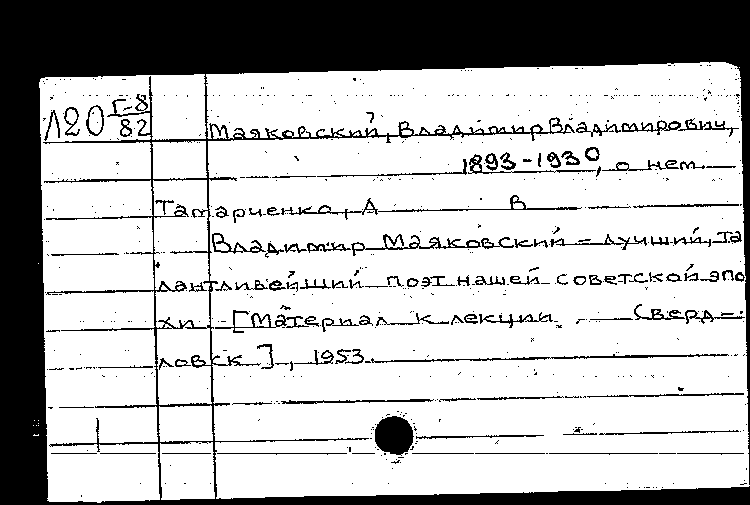 Л20 Г-8/82
Маяковский, Владимир Владимирович,
1893-1930, о нем.
Татарченко, А В
Владимир Маяковский - лучший, та
лантливейший поэт нашей советской эпо
хи [Материал к лекции. Сверд-
ловск], 1953.